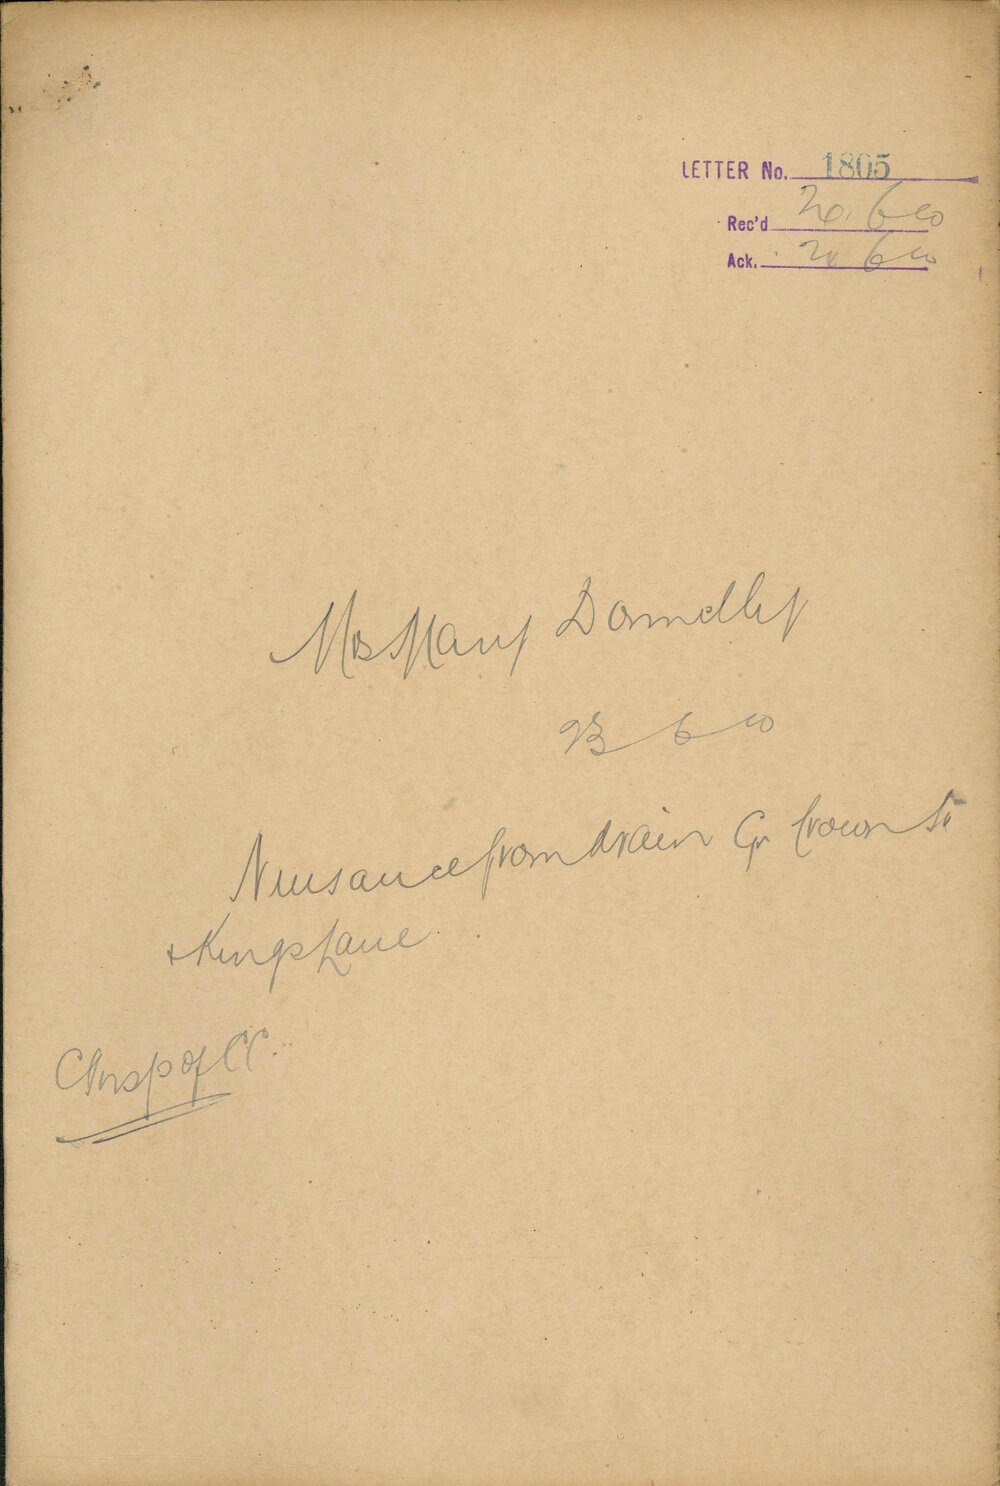 LETTER No. 1805
Rec'd 6 00
Ack. 6 00
Mrs Mary Donnelly
23 6 00
Nuisance from drain Cr Crown St
& Kings Lane
C Insp of CC.